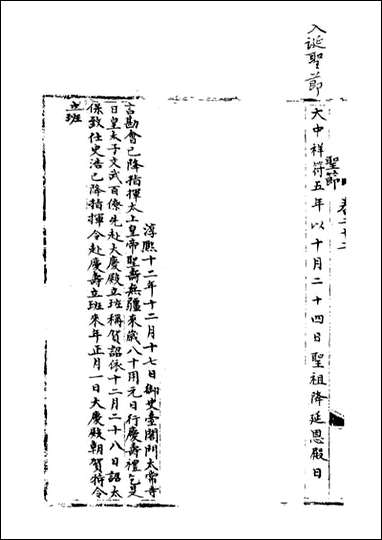 入誕聖節
聖節 卷二十二
大中祥符五年以十月二十四日聖祖降延恩殿日
淳熙十二年十二月十七日御史臺閤門太常寺
言勘會已降指揮太上皇帝聖壽無疆來歲八十用元日行慶壽禮乞是
日皇太子文武百僚先赴大慶殿立班稱賀詔依十二月二十八日詔太
保致仕史浩已降指揮令赴慶壽立班來年正月一日大慶殿朝賀特令
立班